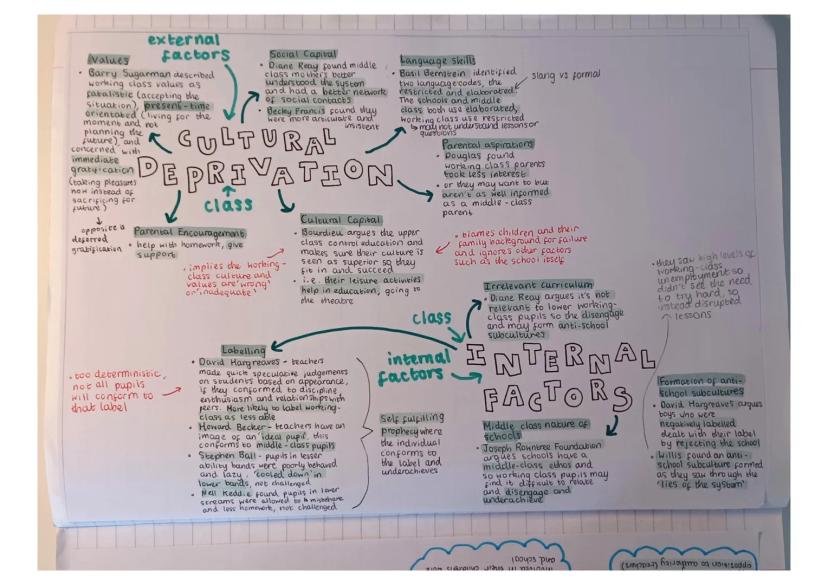 external
factors
Values
• Barry Sugarman described
working class values as
fatalistic (accepting the
situation), present-time
orientated (living for the
moment and not
planning the
future), and
concerned with
immediate
gratification
(taking pleasures
now instead of
sacrificing for
future)
opposite is
deferred
gratification
Social Capital
• Diane Reay found middle
class mothers better
understood the system
and had a better network
of social contacts
• Becky Francis found they
were more articulate and
insistent
Language skills
• Basil Bernstein identified
two language codes, the
restricted and elaborated.
The schools and middle
class both use elaborated,
working class use restricted
may not understand lessons or
questions
slang vs formal
CULTURAL
DEPRIVATION
class
Parental aspirations
• Douglas found
working class parents
took less interest
• or they may want to but
aren't as well informed
as a middle-class
parent
Parental Encouragement
• help with homework, give
support
• implies the working-
class culture and
values are 'wrong'
or 'inadequate'
Cultural Capital
• Bourdieu argues the upper
class control education and
makes sure their culture is
seen as superior so they
fit in and succeed
• i.e. their leisure activities
help in education, going to
the theatre
• blames children and their
family background for failure
and ignores other factors
such as the school itself
Irrelevant curriculum
• Diane Reay argues it's not
relevant to lower working-
class pupils so the disengage
and may form anti-school
subcultures
• they saw high levels of
working-class
unemployment so
didn't see the need
to try hard, so
instead disrupted
lessons
class
internal
factors
INTERNAL
FACTORS
Labelling
• David Hargreaves - teachers
made quick speculative judgements
on students based on appearance,
if they conformed to discipline
enthusiasm and relationships with
peers. More likely to label working-
class as less able
• Howard Becker - teachers have an
image of an 'ideal pupil', this
conforms to middle-class pupils
• Stephen Ball - pupils in lesser
ability bands were poorly behaved
and lazy, 'cooled down' in
lower bands, not challenged
• Nell Keddie found pupils in lower
streams were allowed to
and less homework, not challenged
• too deterministic,
not all pupils
will conform to
that label
Self fulfilling
prophecy where
the individual
conforms to
the label and
underachieves
Middle class nature of
schools
• Joseph Rowntree Foundation
argues schools have a
middle-class ethos and
so working class pupils may
find it difficult to relate
and disengage and
underachieve
Formation of anti-
school subcultures
• David Hargreaves argues
boys who were
negatively labelled
dealt with their label
by rejecting the school
• Willis found an anti-
school subculture formed
as they saw through the
'lies of the system'
involved in their children's
and school
opposition to authority (teachers)